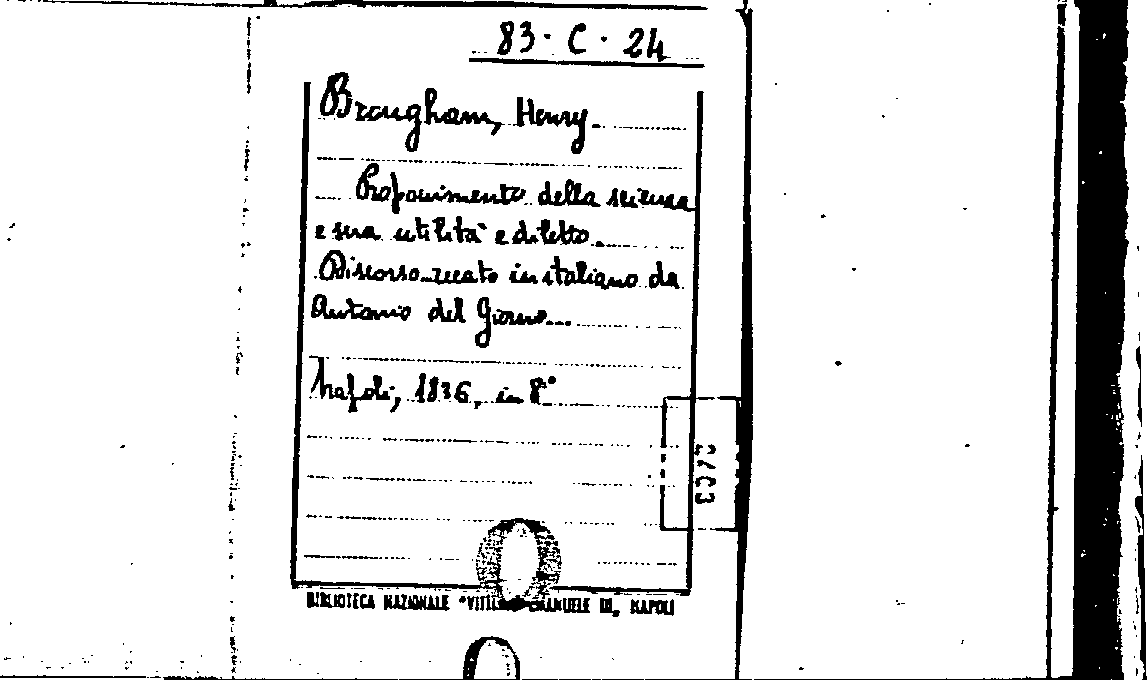 83. C. 24
Brougham, Henry.
Proponimento della scienza
e sua utilità e diletto.
Discorso recato in italiano da
Antonio del Giorno...
Napoli, 1836, in 8°
BIBLIOTECA NAZIONALE "VITT EMANUELE III, NAPOLI